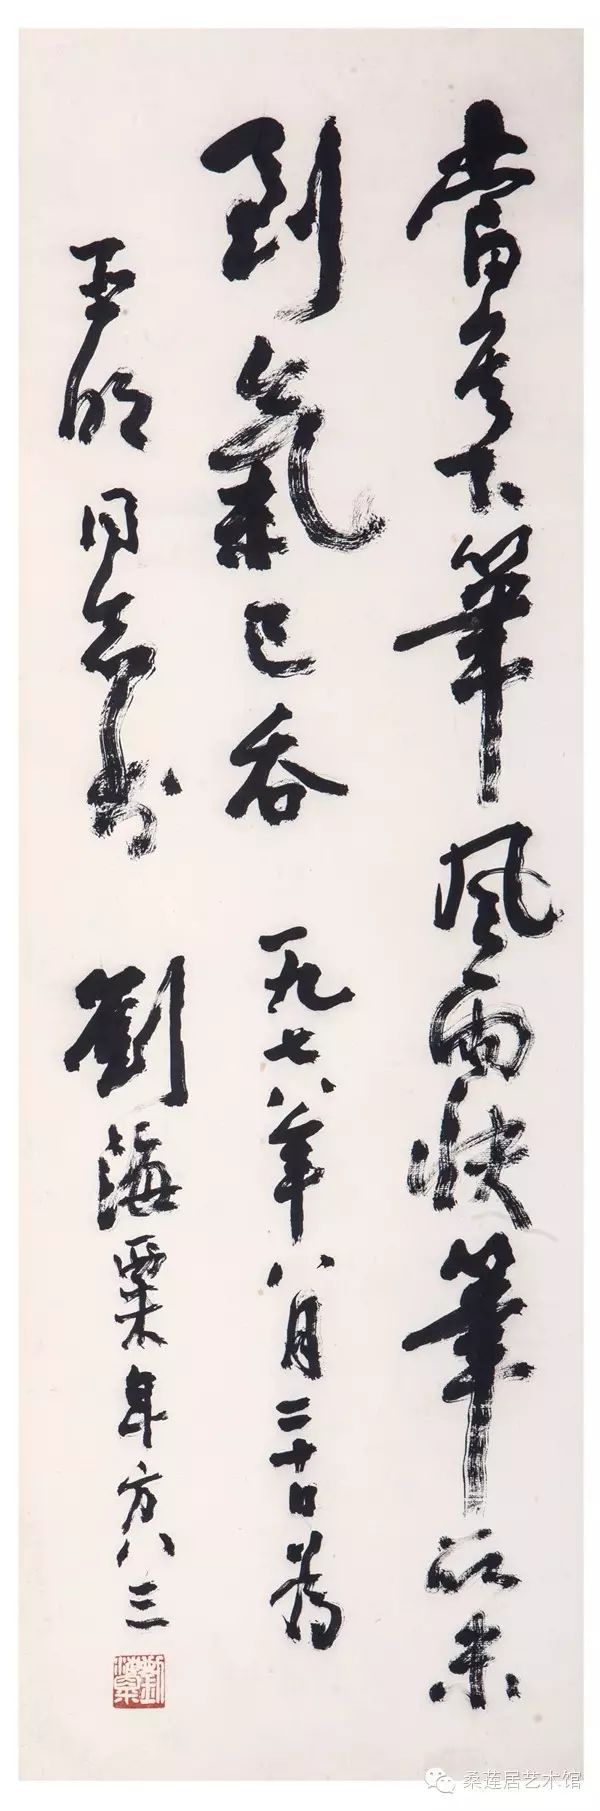 當其下筆風雨快筆所未
到氣已吞 一九七八年八月二十日為
玉明同志書 劉海粟年方八三
劉海粟
桑莲居艺术馆